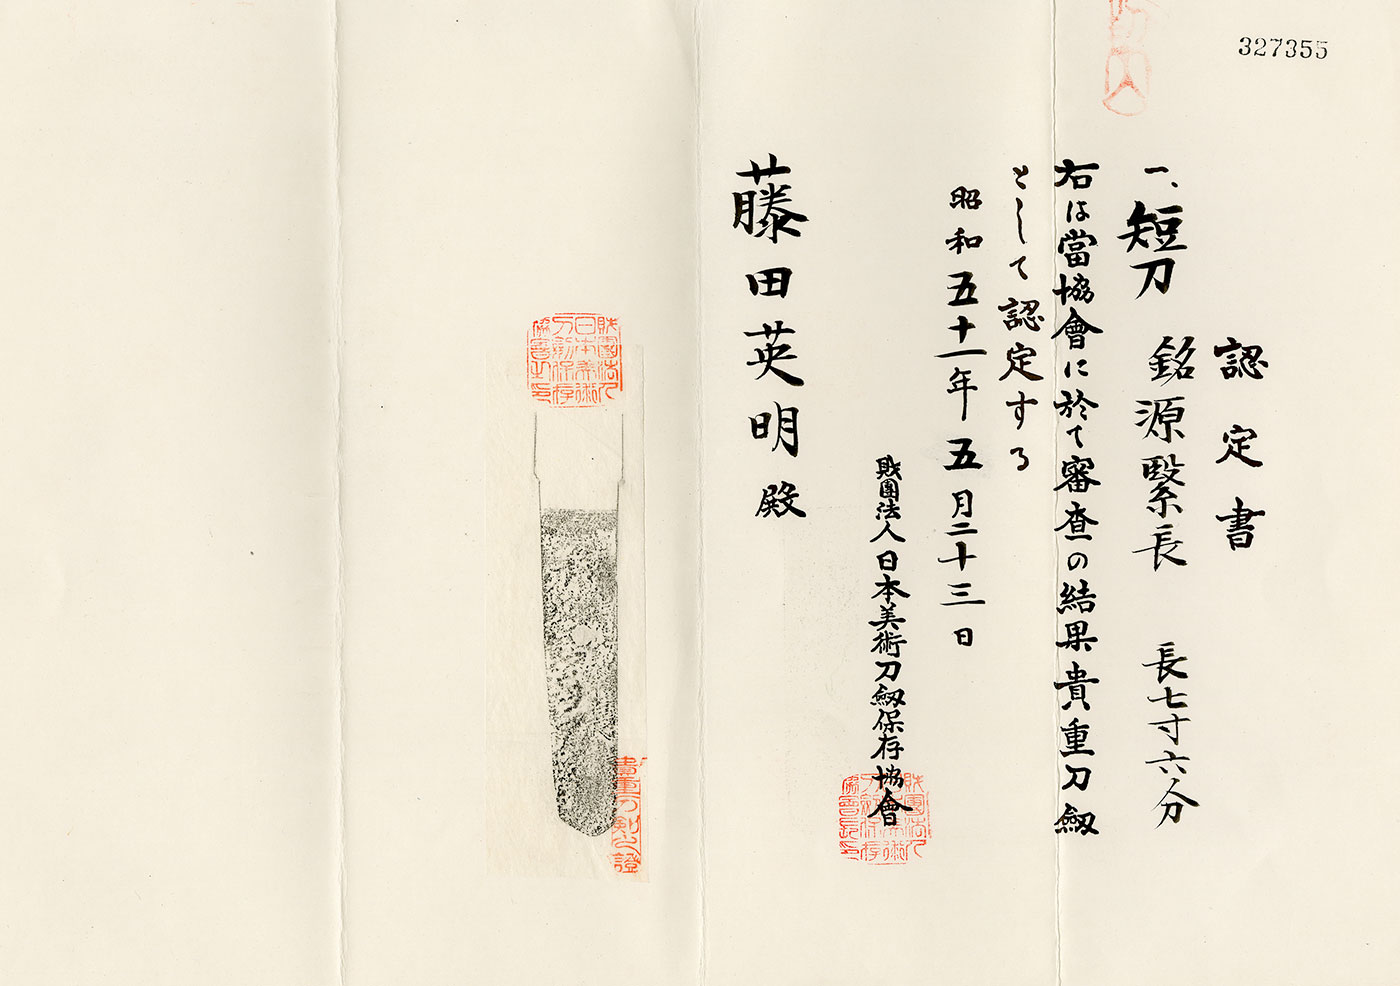 327355
認定書
一、短刀 銘源繄長 長七寸六分
右は當協會に於て審査の結果貴重刀劔
として認定する
昭和五十一年五月二十三日
財團法人日本美術刀劔保存協會
藤田英明殿
財團法人
日本美術
刀剣保存
協會之印
貴重刀剣之證